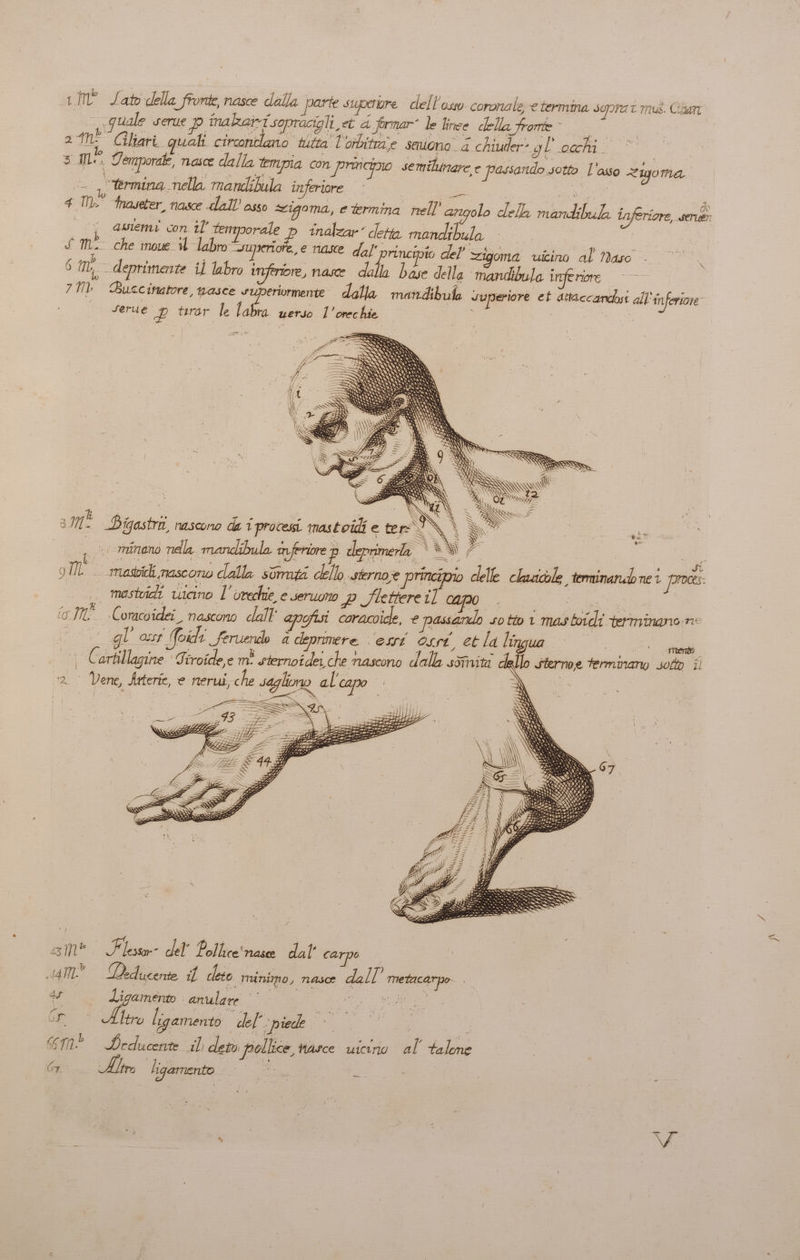 1 M.lo Lato della fronte, nasce dalla parte superiore dell'osso coronale, e termina sopra i mus. Ciliari
quale serue p inalzar' i sopracigli, et à formar' le linee della fronte
2 M.lo Ciliari quali circondano tutta l'orbita, e seruono à chiuder' gl' occhi
3 M.lo Temporale, nasce dalla tempia con principio semilunare, e passando sotto l'osso zigoma
termina nella mandibula inferiore
4 M.lo Maseter, nasce dall' osso zigoma, e termina nell' angolo della mandibula inferiore, seruen:
assiemi con il' temporale p inalzar' detta mandibula
5 M.lo che moue il labro superiore, e nasce dal' principio del' zigoma uicino al Naso
6 M.lo deprimente il labro inferiore, nasce dalla base della mandibula inferiore
7 M.lo Buccinatore, nasce superiormente dalla mandibula superiore et attaccandosi all' inferiore
serue p tirar le labra uerso l'orechie
1 2 6 9 12
8 M.li Digastrii, nascono da i processi mastoidi e ter:
minano nella mandibula inferiore p deprimerla
9 M.li mastoidi, nascono dalla somità dello sterno, e principio delle clauicole, terminando ne i proces:si
mastoidi uicino l'orechie, e seruono p flettere il capo
10 M.li Coracoidei, nascono dall' apofisi coracoide, e passando sotto i mastoidi terminano ne
gl' ossi Joidi seruendo à deprimere essi ossi, et la lingua
Cartillagine Tiroide, e m.li sternoidei, che nascono dalla somità dello sterno, e terminano sotto il mento
12 Vene, Arterie, e nerui, che sagliono al' capo
43 45
44
67
65
66
43 M.lo Flessor' del' Pollice nasce dal' carpo
44 M.lo Deducente il deto minimo, nasce dall' metacarpo
45 Ligamento anulare
65 Altro ligamento del' piede
66 M.lo Deducente il deto pollice, nasce uicino al' talone
67 Altro ligamento
V